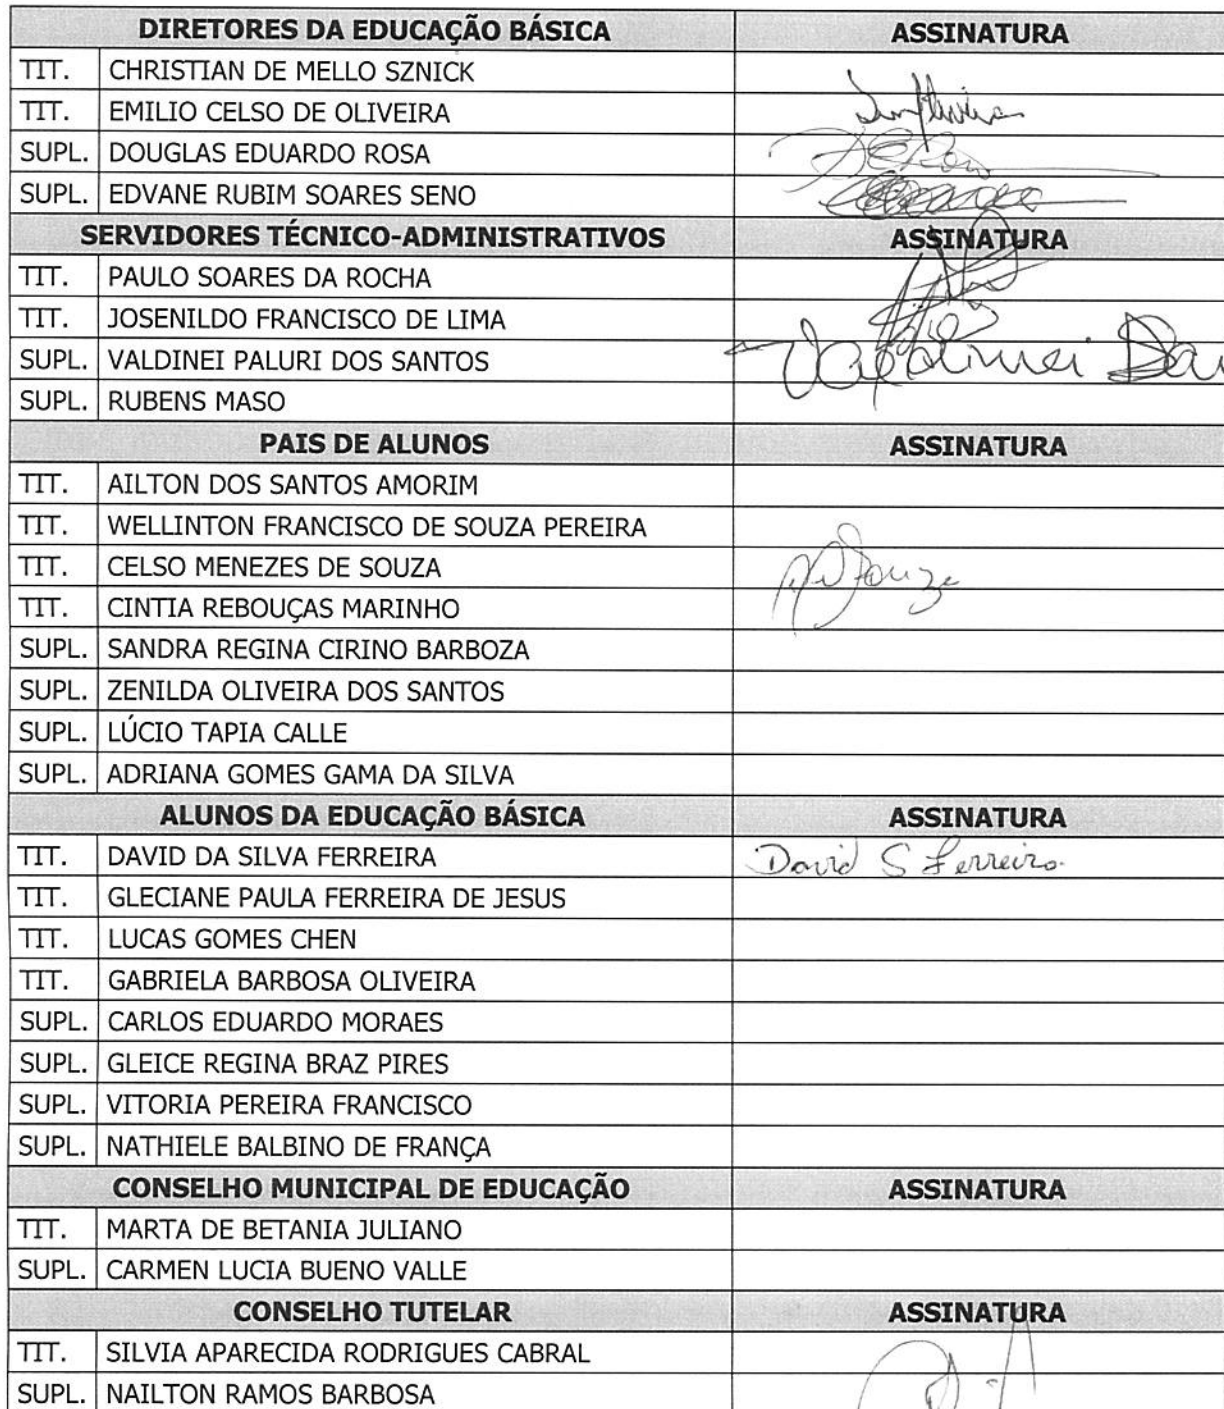 DIRETORES DA EDUCAÇÃO BÁSICA ASSINATURA
TIT. CHRISTIAN DE MELLO SZNICK
TIT. EMILIO CELSO DE OLIVEIRA
SUPL. DOUGLAS EDUARDO ROSA
SUPL. EDVANE RUBIM SOARES SENO
SERVIDORES TÉCNICO-ADMINISTRATIVOS ASSINATURA
TIT. PAULO SOARES DA ROCHA
TIT. JOSENILDO FRANCISCO DE LIMA
SUPL. VALDINEI PALURI DOS SANTOS Valdinei
SUPL. RUBENS MASO
PAIS DE ALUNOS ASSINATURA
TIT. AILTON DOS SANTOS AMORIM
TIT. WELLINTON FRANCISCO DE SOUZA PEREIRA
TIT. CELSO MENEZES DE SOUZA Souza
TIT. CINTIA REBOUÇAS MARINHO
SUPL. SANDRA REGINA CIRINO BARBOZA
SUPL. ZENILDA OLIVEIRA DOS SANTOS
SUPL. LÚCIO TAPIA CALLE
SUPL. ADRIANA GOMES GAMA DA SILVA
ALUNOS DA EDUCAÇÃO BÁSICA ASSINATURA
TIT. DAVID DA SILVA FERREIRA David S Ferreira
TIT. GLECIANE PAULA FERREIRA DE JESUS
TIT. LUCAS GOMES CHEN
TIT. GABRIELA BARBOSA OLIVEIRA
SUPL. CARLOS EDUARDO MORAES
SUPL. GLEICE REGINA BRAZ PIRES
SUPL. VITORIA PEREIRA FRANCISCO
SUPL. NATHIELE BALBINO DE FRANÇA
CONSELHO MUNICIPAL DE EDUCAÇÃO ASSINATURA
TIT. MARTA DE BETANIA JULIANO
SUPL. CARMEN LUCIA BUENO VALLE
CONSELHO TUTELAR ASSINATURA
TIT. SILVIA APARECIDA RODRIGUES CABRAL
SUPL. NAILTON RAMOS BARBOSA